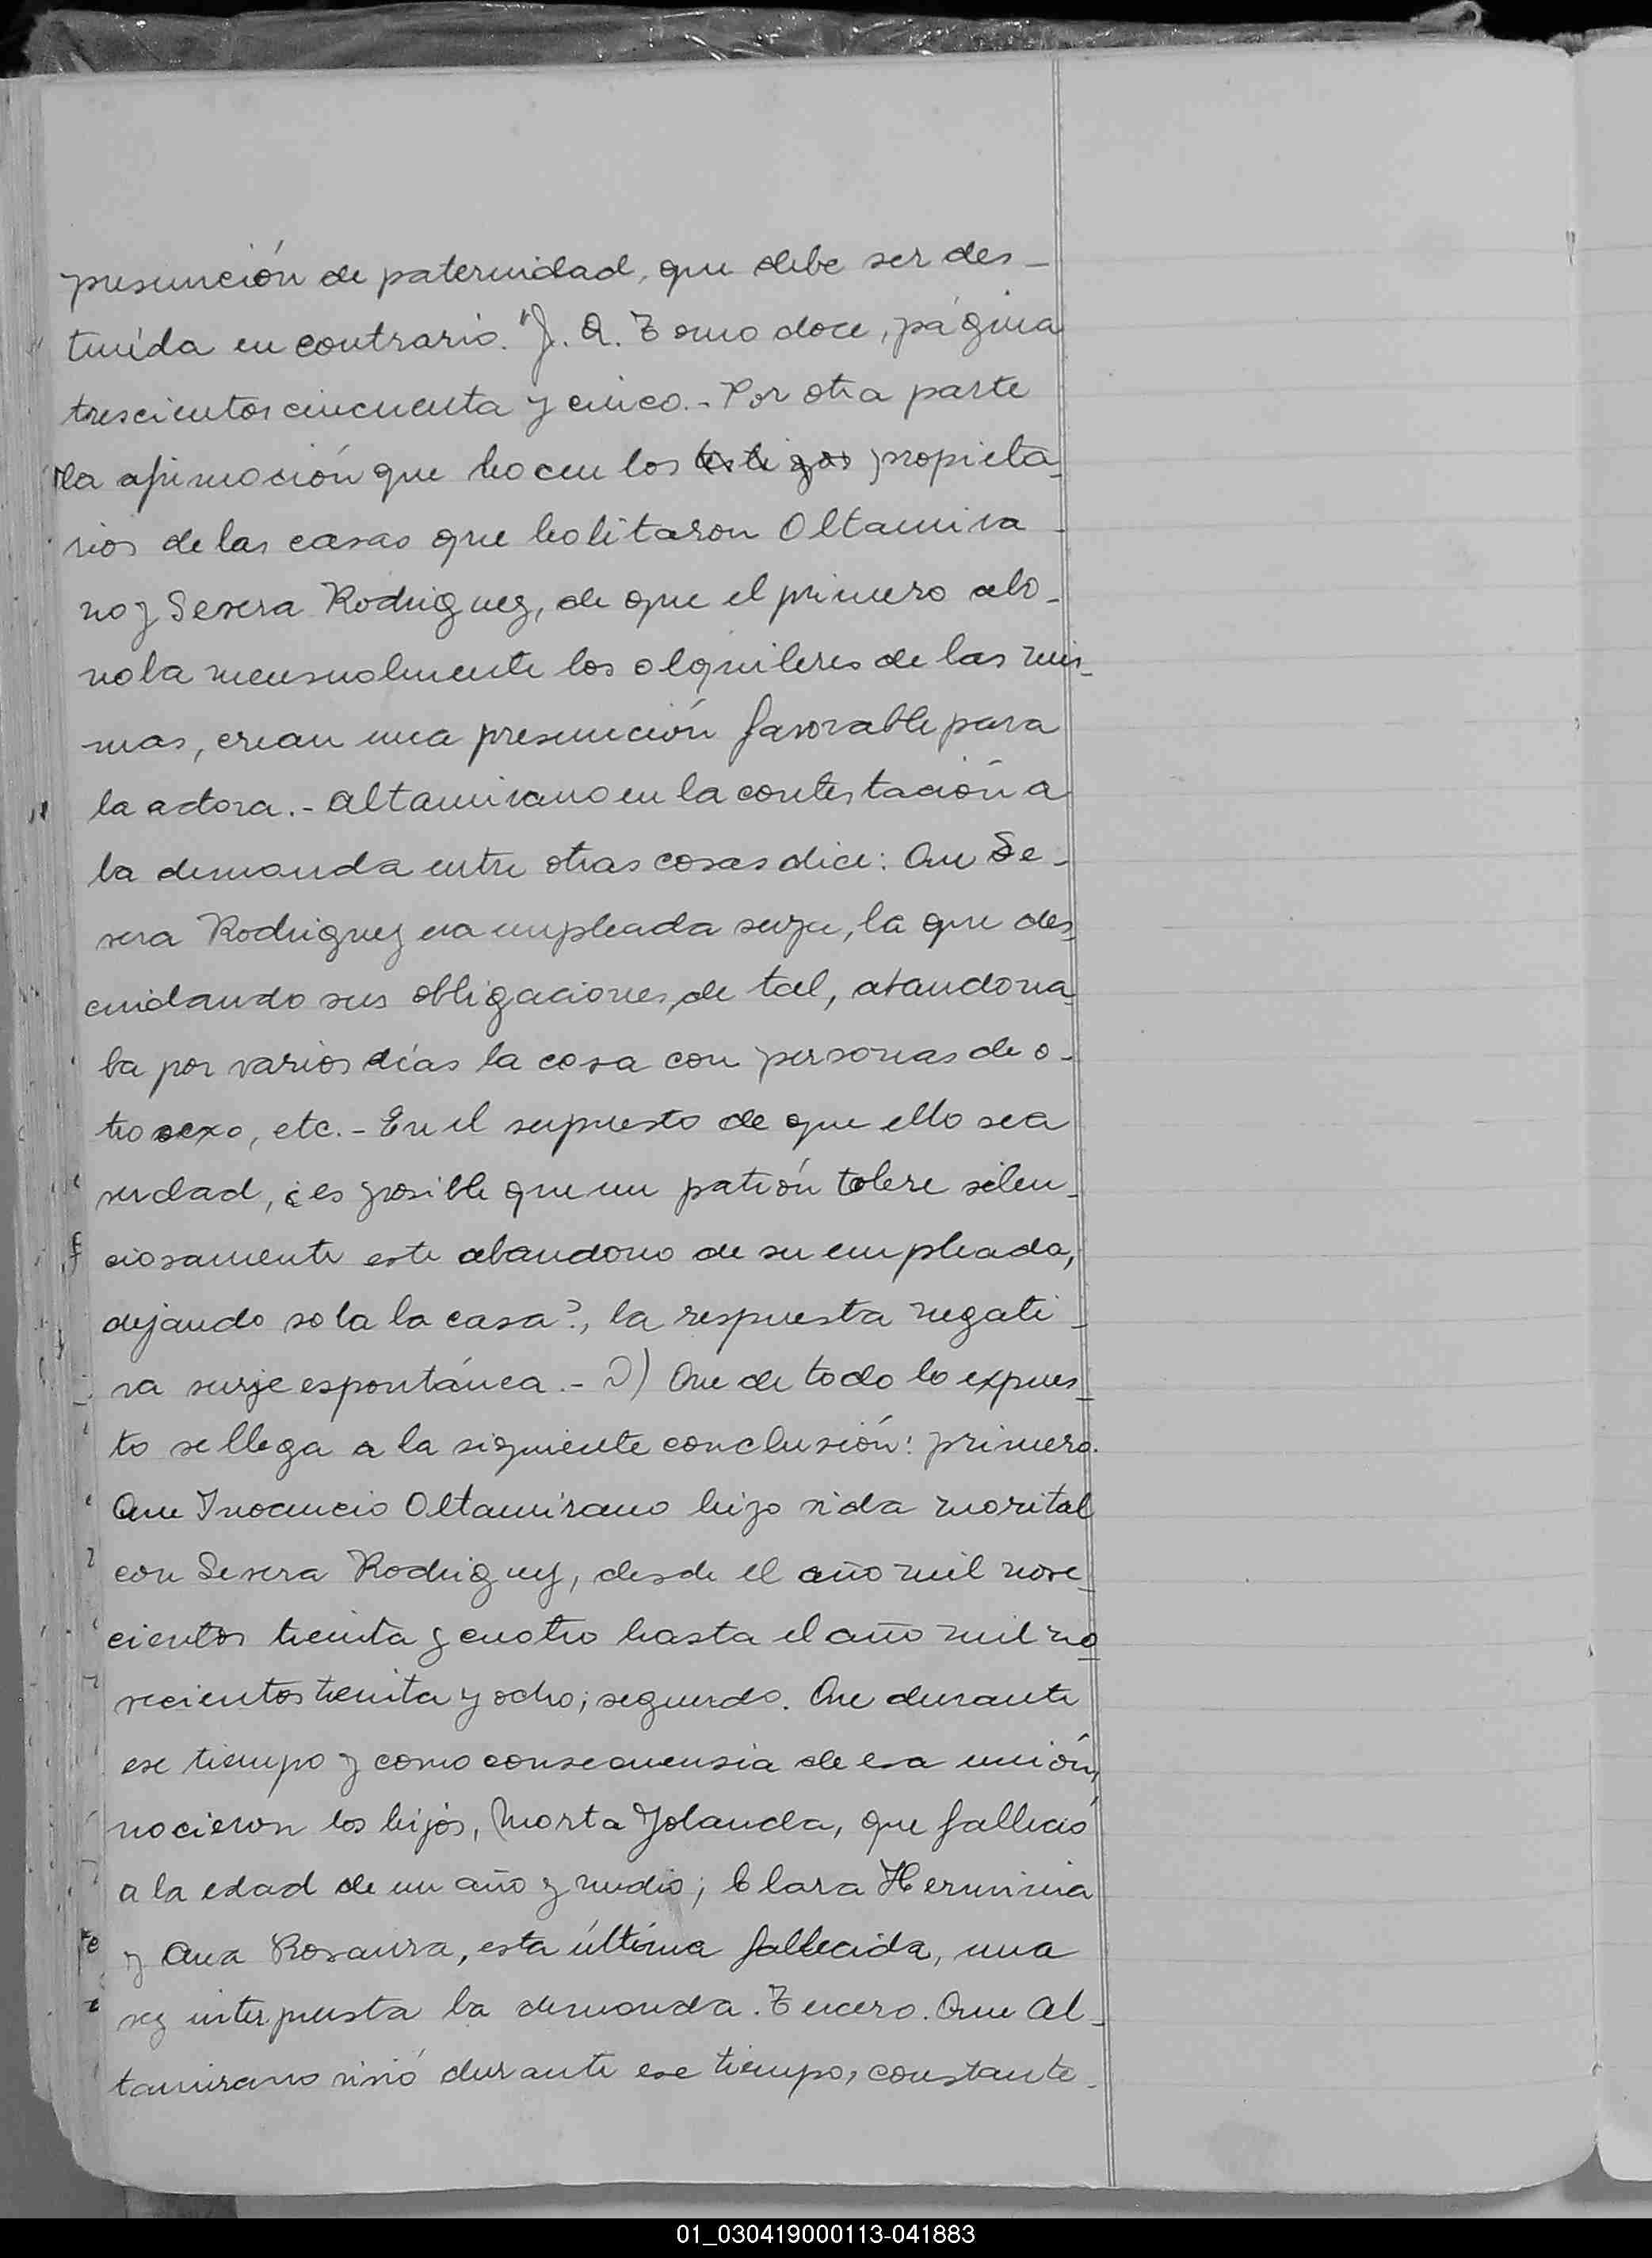 presunción de paternidad, que debe ser des-
tuída en contrario." J. A. Tomo doce, página
trescientos cincuenta y cinco.- Por otra parte
la afirmación que hacen los testigos propieta-
rios de las casas que habitaron Altamira-
no y Severa Rodriguez, de que el primero abo-
naba mensualmente los alquileres de las mis-
mas, crean una presunción favorable para
la actora.- Altamirano en la contestación a
la demanda entre otras cosas dice: Que Se-
vera Rodriguez era empleada suya, la que des-
cuidando sus obligaciones, de tal, abandona-
ba por varios días la casa con personas de o-
tro sexo, etc.- En el supuesto de que ello sea
verdad, ¿es posible que un patrón tolere silen-
ciosamente este abandono de su empleada,
dejando sola la casa?, la respuesta negati-
va surje espontánea.- D) Que de todo lo expues-
to se llega a la siguiente conclusión: primero.
Que Inocencio Altamirano hizo vida marital
con Severa Rodriguez, desde el año mil nove-
cientos treinta y cuatro hasta el año mil no-
vecientos treinta y ocho; segundo. Que durante
ese tiempo y como consecuensia de esa unión,
nacieron los hijos, Marta Yolanda, que falleció
a la edad de un año y medio; Clara Herminia
y Ana Rosaura, esta última fallecida, una
vez interpuesta la demanda. Tercero. Que Al-
tamirano vivió durante ese tiempo, constante-
01_030419000113-041883